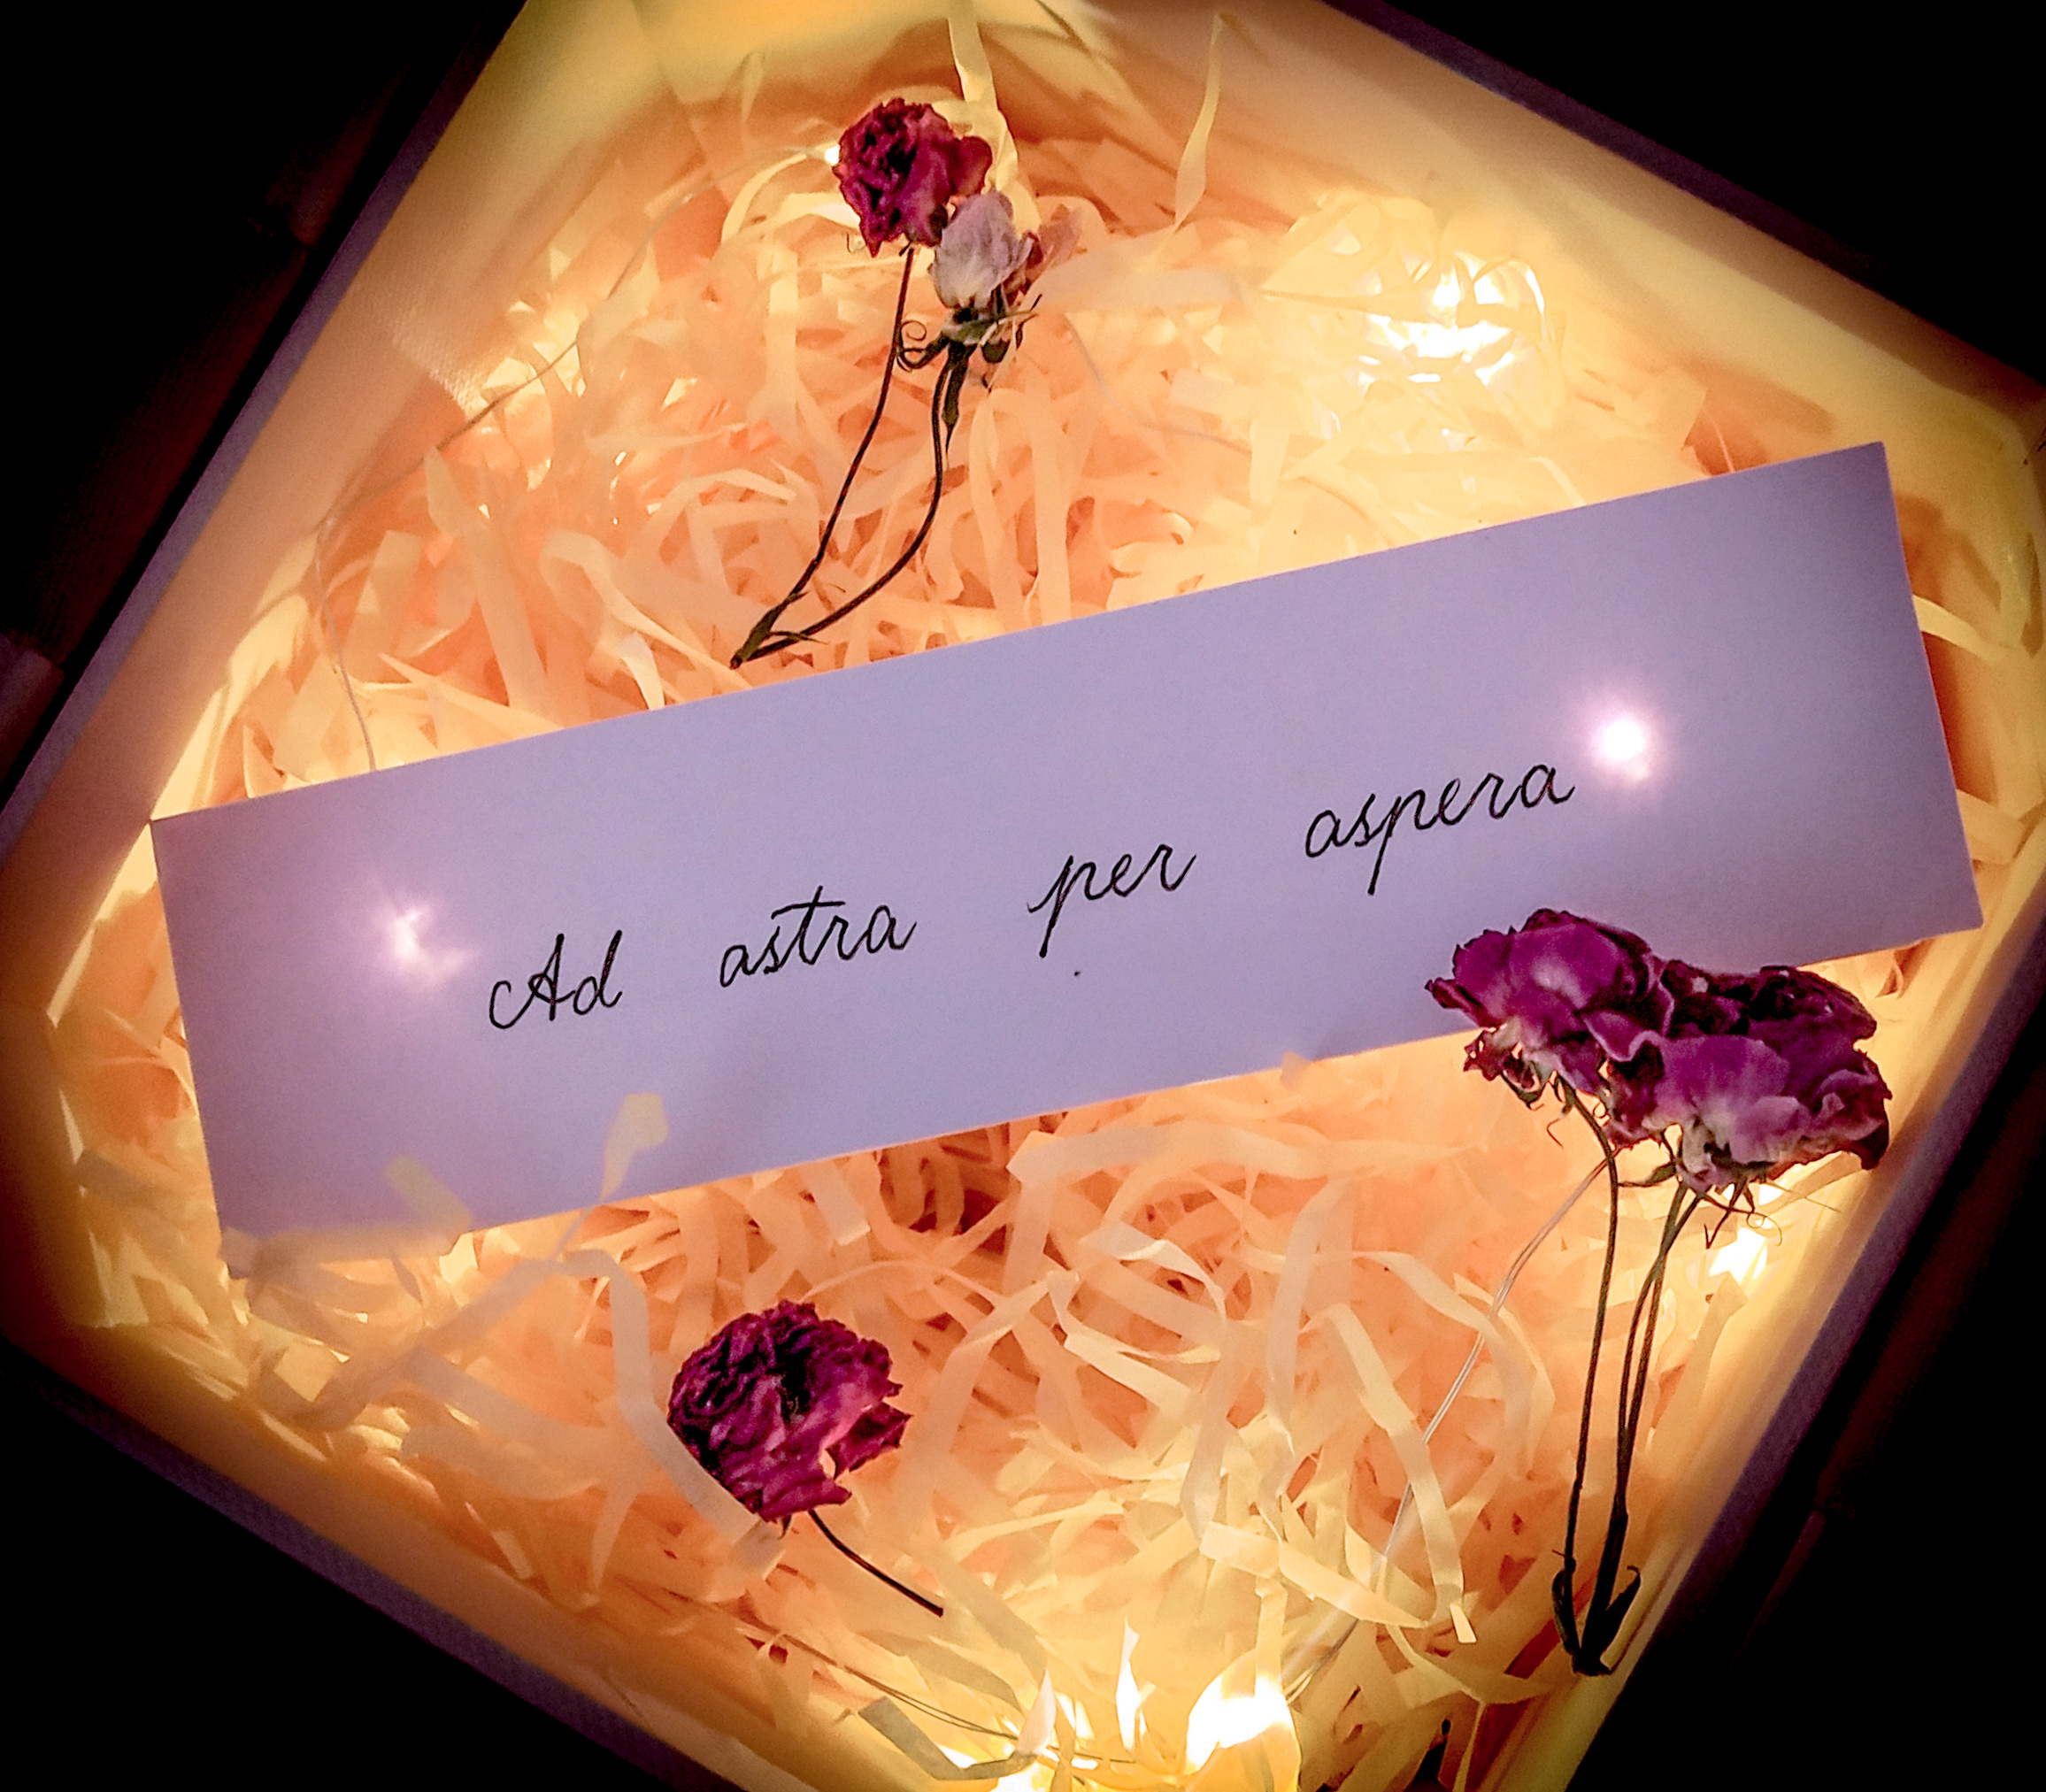 Ad astra per aspera